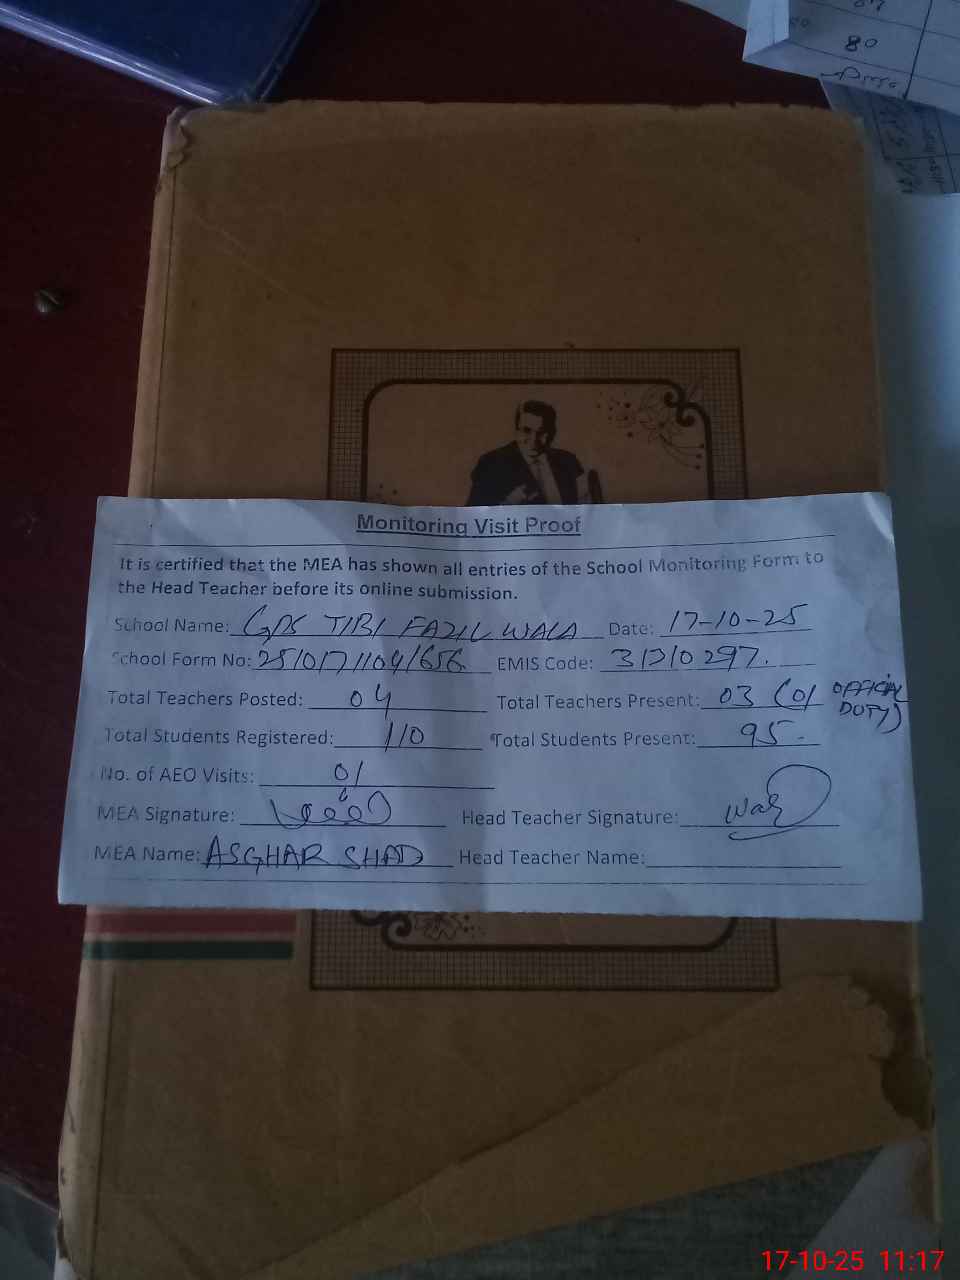 80
Monitoring Visit Proof
It is certified that the MEA has shown all entries of the School Monitoring Form to
the Head Teacher before its online submission.
School Name: GPS TIBI FAZIL WALA Date: 17-10-25
School Form No: 2510171104/656 EMIS Code: 31310297.
Total Teachers Posted: 04 Total Teachers Present: 03 (01 OFFICIAL DUTY)
Total Students Registered: 110 Total Students Present: 95-
No. of AEO Visits: 01
MEA Signature: Head Teacher Signature:
MEA Name: ASGHAR SHAD Head Teacher Name:
17-10-25 11:17